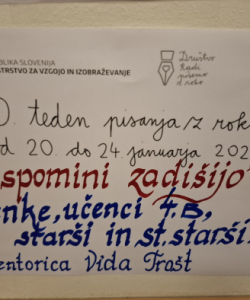 BLIKA SLOVENIJA
STRSTVO ZA VZGOJO IN IZOBRAŽEVANJE
Društvo
Radi
pišemo
z roko
0. teden pisanja z rok
d 20. do 24. januarja 202
spomini zadišijo
nke, učenci 7.B,
starši in st.starši
entorica Vida Trošt